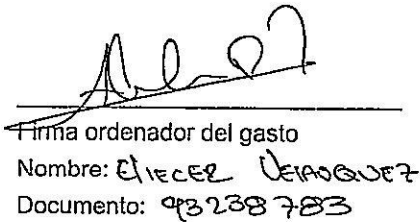 Firma ordenador del gasto
Nombre: Eliecer Velasquez
Documento: 93238783